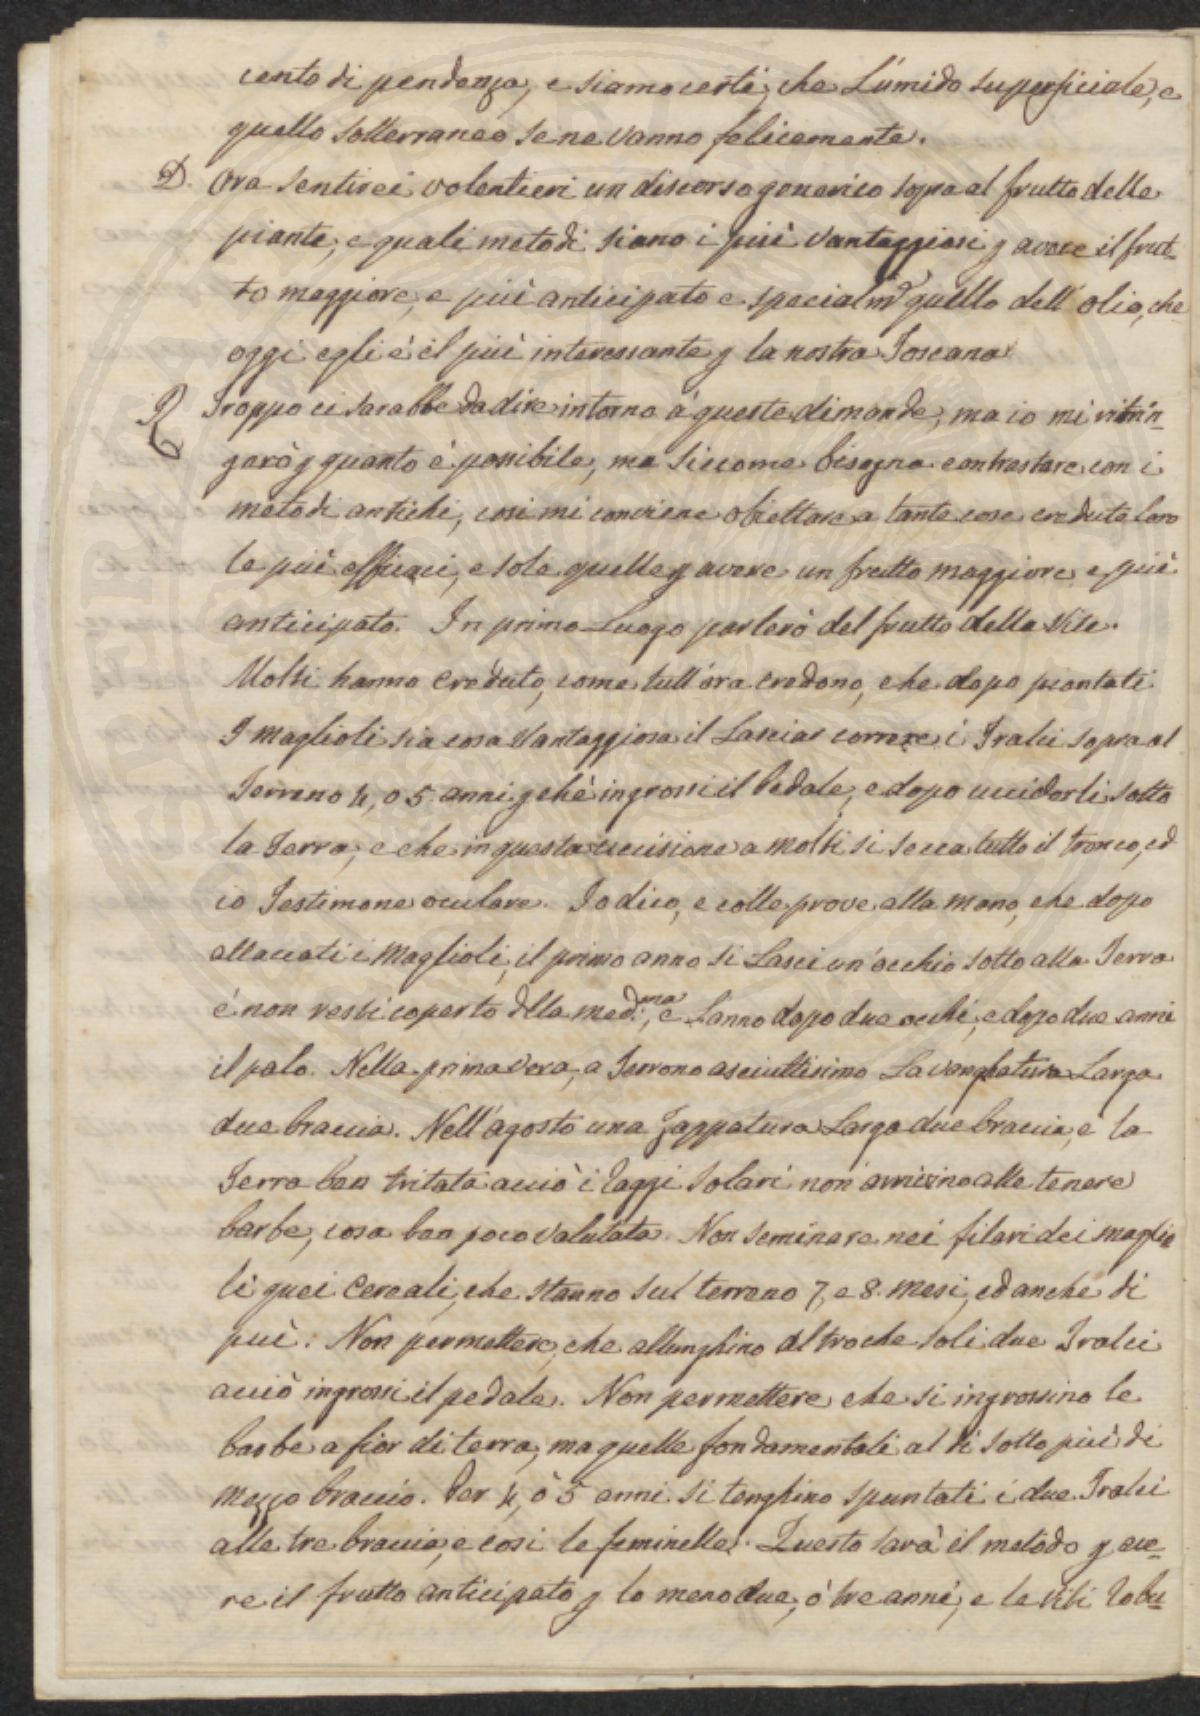 cento di pendenza, e siamo certi, che L'úmido superficiale, e
quello sotterraneo se ne vanno felicemente.
D. Ora sentirei volentieri un discorso generico sopra al frutto delle
piante, e quali metodi siano i più vantaggiosi p avere il frut-
to maggiore, e più anticipato e specialm.e quello dell'olio, che
oggi egli è il più interessante p la nostra Toscana
R Troppo ci sarebbe da dire intorno á queste dimande, ma io mi ristrin-
gerò p quanto è possibile, ma siccome bisogna contrastare con i
metodi antichi, cosi mi conviene obiettare a tante cose credute loro
le più efficaci, e sole quelle p avere un frutto maggiore e più
anticipato. In primo Luogo parlerò del frutto della Vite.
Molti hanno creduto, come tutt'óra credono, che dopo piantati
I maglioli sia cosa Vantaggiosa il Lasciar correre i Tralci sopra al
Terreno 4, o 5 anni pchè ingrossi il Pedale, e dopo ucciderli sotto
la Terra, e che in questa uccisione a molti si secca tutto il tronco, ed
io Testimone oculare. Io dico, e colle prove alla mano, che dopo
allacciati i Maglioli, il primo anno si Lasci un'occhio sotto alla Terra
é non resti coperto dlla med.ma, e L'anno dopo due occhi, e dopo due anni
il palo. Nella primavera, a Terreno asciuttissimo La vanghatura Larga
due braccia. Nell'agosto una Zappatura Larga due braccia, e la
Terra ben tritata acciò i Raggi Solari non arrivino alle tenere
barbe, cosa ben poco valutata. Non seminare nei filari dei maglio
li quei Cereali, che stanno sul terreno 7, e 8. mesi, ed anche di
più. Non permettere, che allunghino altro che soli due Tralci
acciò ingrossi il pedale. Non permettere che si ingrossino le
barbe a fior di terra, ma quelle fondamentali al di sotto più di
mezzo braccio. Per 4, ò 5 anni si tenghino spuntati i due Tralci
alle tre braccia, e cosi le feminelle. Questo sarà il metodo p ave-
re il frutto anticipato p lo meno due, ò tre anni, e le viti Robu-